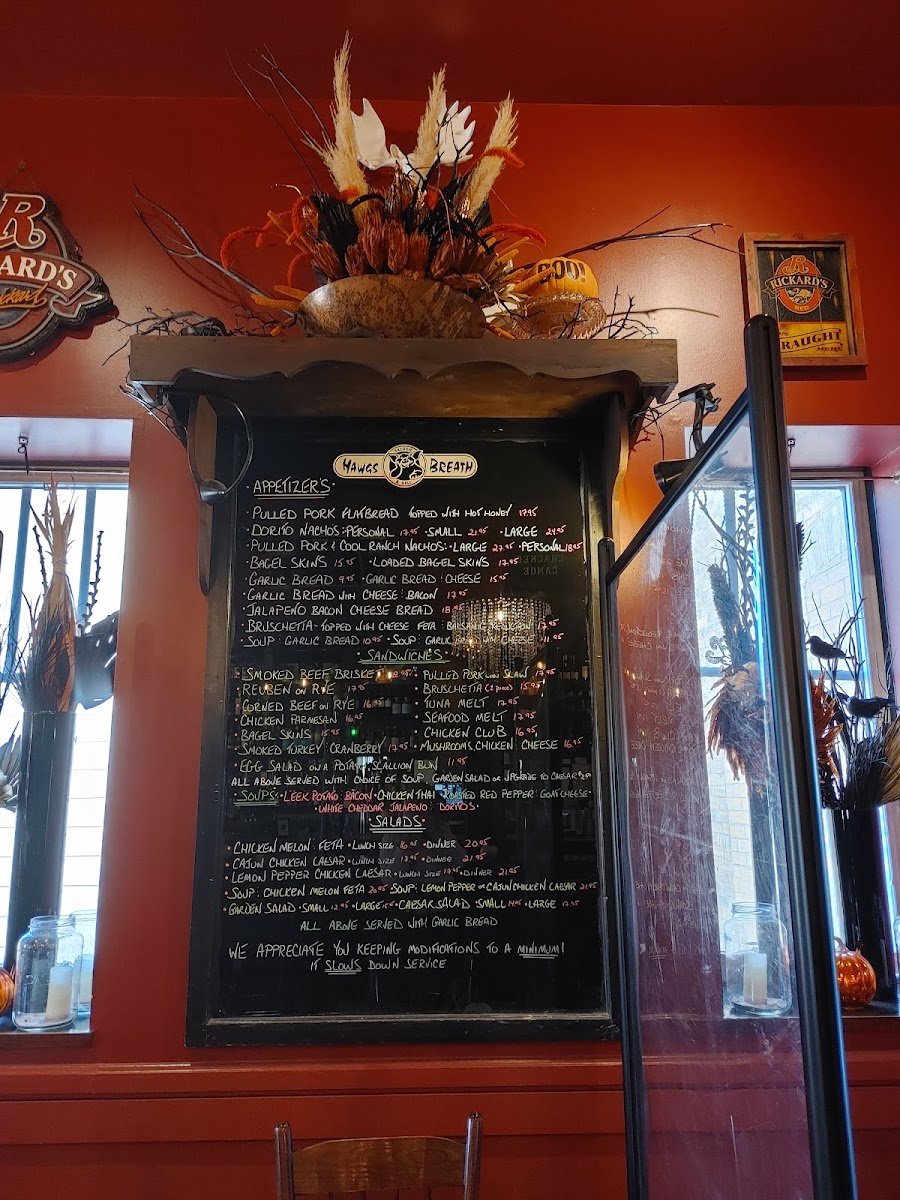 BOO!
R
CKARD'S
Rickard
R
RICKARD'S
RED
RAUGHT
HERE
HAWGS BREATH
· APPETIZER'S ·
· PULLED PORK FLATBREAD TOPPED WITH HOT HONEY 17.95
· DORITO NACHOS: PERSONAL 17.95 · SMALL 21.95 · LARGE 24.95
· PULLED PORK & COOL RANCH NACHOS: · LARGE 27.95 · PERSONAL 18.95
· BAGEL SKINS 15.95 · LOADED BAGEL SKINS 17.95
· GARLIC BREAD 9.95 · GARLIC BREAD : CHEESE 15.95
· GARLIC BREAD WITH CHEESE : BACON 17.95
· JALAPEÑO BACON CHEESE BREAD 18.95
· BRUSCHETTA - TOPPED WITH CHEESE FETA : BALSAMIC REDUCTION 17.95
· SOUP : GARLIC BREAD 10.95 · SOUP : GARLIC BREAD WITH CHEESE 11.95
· SANDWICHES ·
· SMOKED BEEF BRISKET 18.95 · PULLED PORK WITH SLAW 17.95
· REUBEN ON RYE 17.95 · BRUSCHETTA (2 PIECES) 15.95
· CORNED BEEF ON RYE 16.95 · TUNA MELT 17.95
· CHICKEN PARMESAN 16.95 · SEAFOOD MELT 17.95
· BAGEL SKINS 15.95 · CHICKEN CLUB 16.95
· SMOKED TURKEY : CRANBERRY 17.95 · MUSHROOMS CHICKEN CHEESE 16.95
· EGG SALAD ON A POTATO SCALLION BUN 11.95
ALL ABOVE SERVED WITH CHOICE OF SOUP, GARDEN SALAD OR UPGRADE TO CAESAR
· SOUPS · LEEK POTATO BACON · CHICKEN THAI · ROASTED RED PEPPER : GOAT CHEESE ·
· WHITE CHEDDAR JALAPEÑO : DORITOS ·
· SALADS ·
· CHICKEN MELON : FETA · LUNCH SIZE 16.95 · DINNER 20.95
· CAJUN CHICKEN CAESAR · LUNCH SIZE 17.95 · DINNER 21.95
· LEMON PEPPER CHICKEN CAESAR · LUNCH SIZE 17.95 · DINNER 21.95
· SOUP : CHICKEN MELON FETA 20.95 SOUP : LEMON PEPPER OR CAJUN CHICKEN CAESAR 21.95
· GARDEN SALAD · SMALL 12.95 · LARGE 15.95 · CAESAR SALAD SMALL 14.95 · LARGE 17.95
ALL ABOVE SERVED WITH GARLIC BREAD
WE APPRECIATE YOU KEEPING MODIFICATIONS TO A MINIMUM!
IT SLOWS DOWN SERVICE